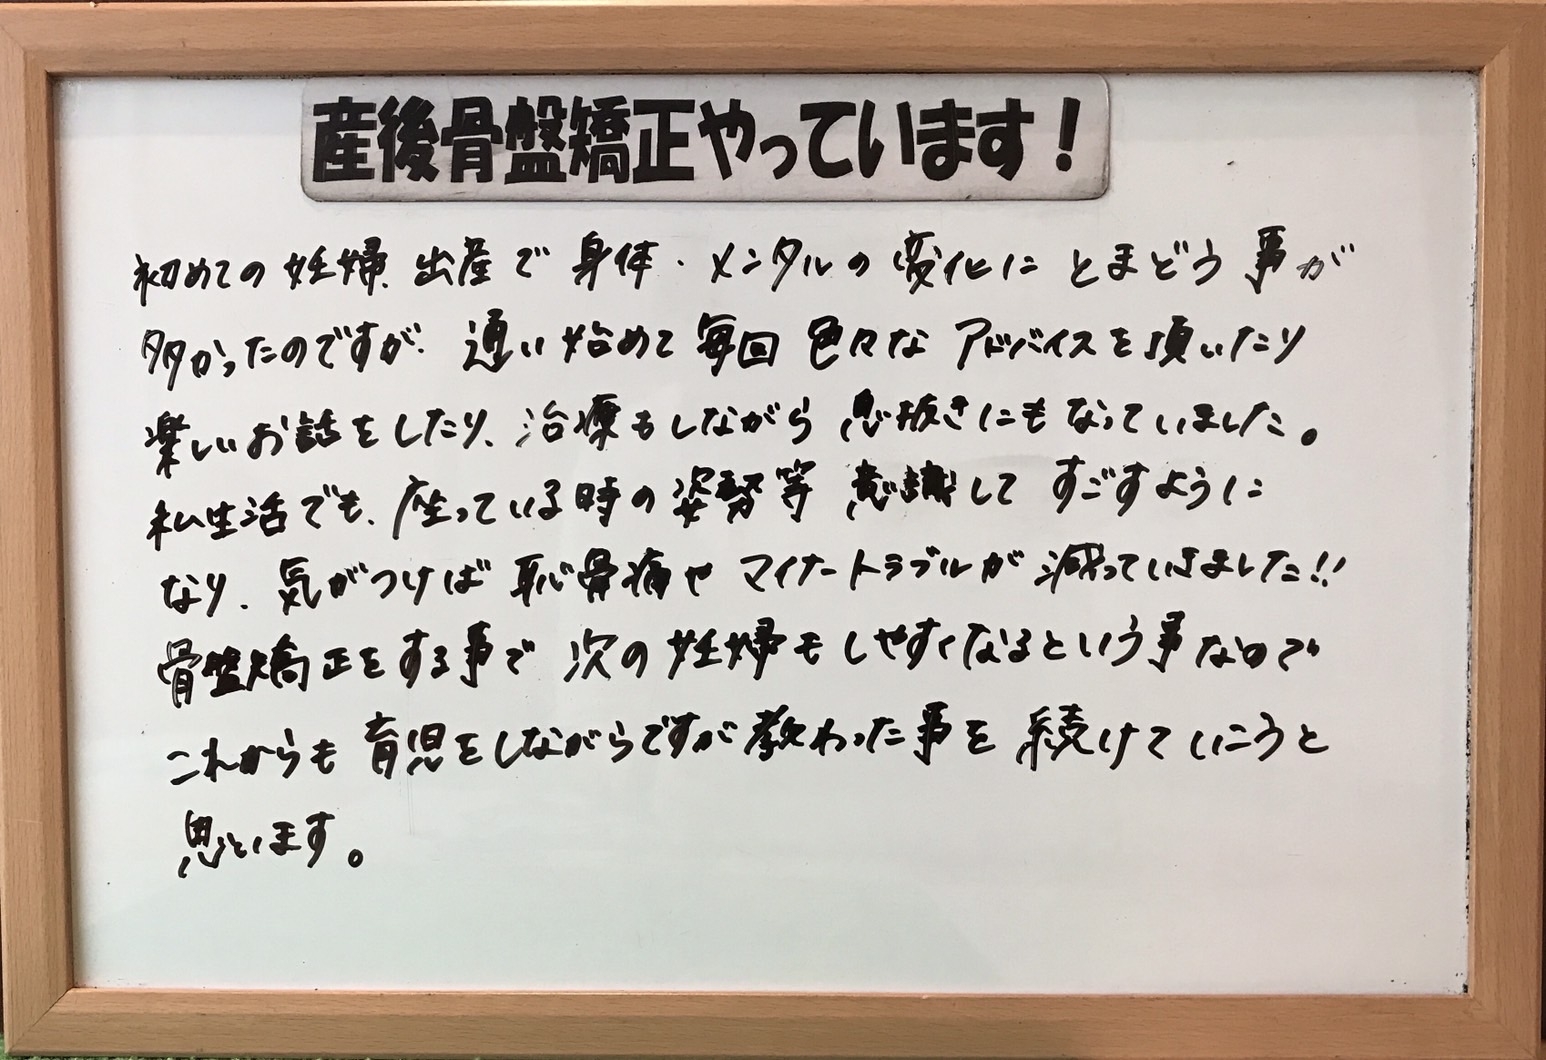 産後骨盤矯正やっています！
初めての妊婦、出産で身体・メンタルの変化にとまどう事が
多かったのですが、通い始めて毎回色々なアドバイスを頂いたり
楽しいお話をしたり、治療もしながら息抜きにもなっていました。
私生活でも、座っている時の姿勢等意識してすごすように
なり、気がつけば恥骨痛やマイナートラブルが減っていきました!!
骨盤矯正をする事で次の妊婦もしやすくなるという事なので
これからも育児をしながらですが教わった事を続けていこうと
思います。